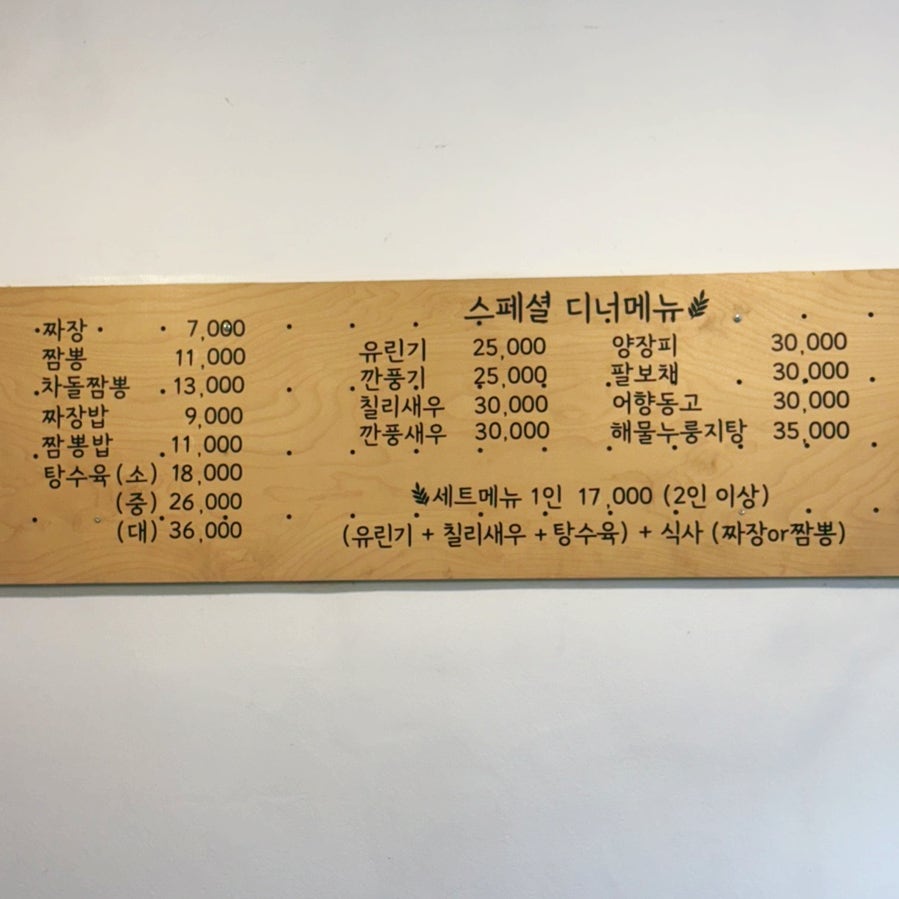 짜장 7,000
짬뽕 11,000
차돌짬뽕 13,000
짜장밥 9,000
짬뽕밥 11,000
탕수육(소) 18,000
(중) 26,000
(대) 36,000
스페셜 디너메뉴
유린기 25,000
깐풍기 25,000
칠리새우 30,000
깐풍새우 30,000
양장피 30,000
팔보채 30,000
어향동고 30,000
해물누룽지탕 35,000
세트메뉴 1인 17,000 (2인 이상)
(유린기 + 칠리새우 + 탕수육) + 식사 (짜장or짬뽕)